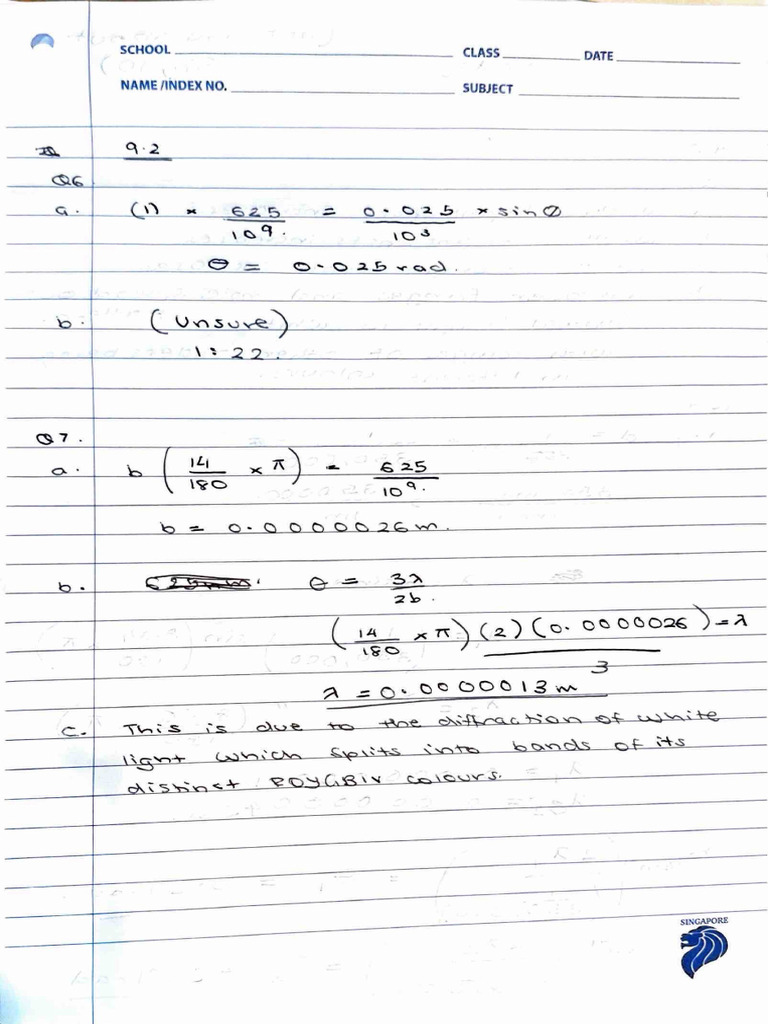 SCHOOL CLASS DATE
NAME /INDEX NO. SUBJECT
9.2
Q6
a. (1) × 625/10⁹. = 0.025/10³ × sin θ
θ = 0.025 rad.
b. (Unsure)
1 : 22.
Q7.
a. b (14/180 × π) = 625/10⁹.
b = 0.0000026 m.
b. θ = 3λ/2b.
(14/180 × π) (2) (0.0000026) = λ
3
λ = 0.0000013 m
c. This is due to the diffraction of white
light which splits into bands of its
distinct ROYGBIV colours.
SINGAPORE